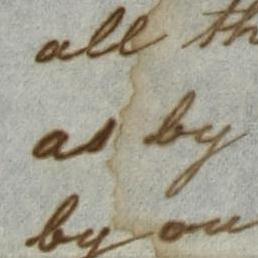 all th
as by
by ou